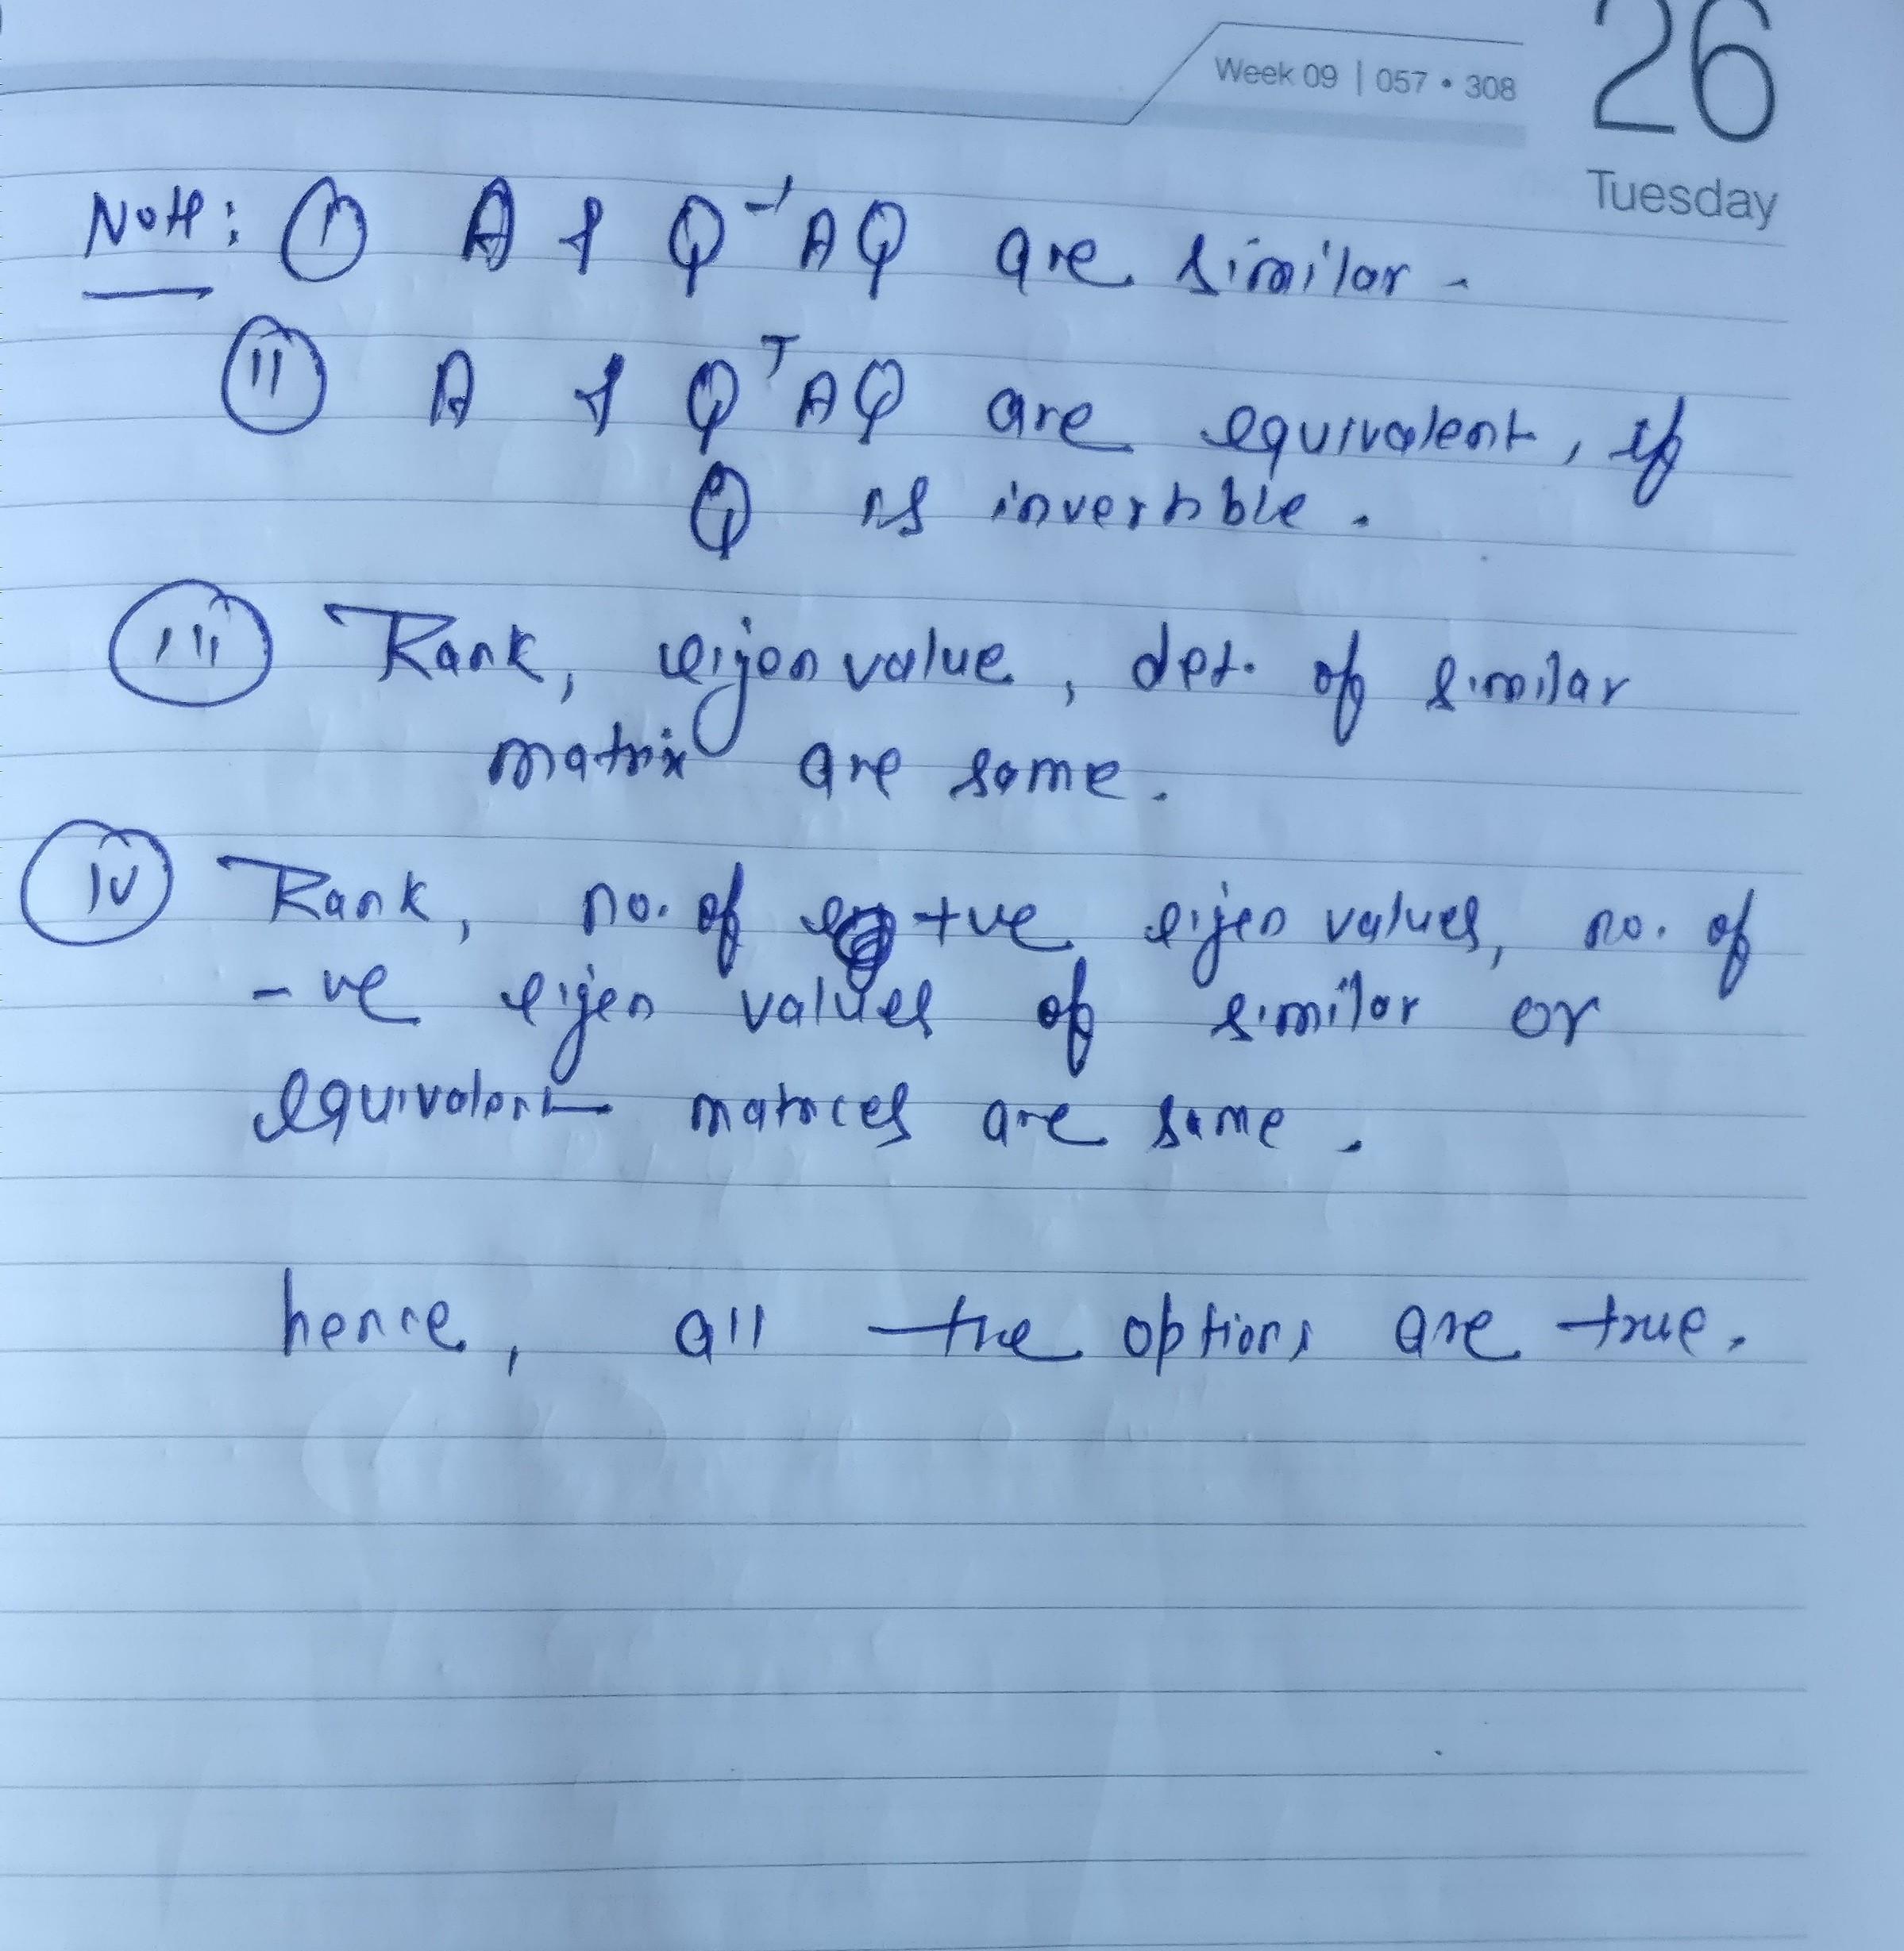 Week 09 | 057 • 308
26
Tuesday
Note: (i) A & Q⁻¹AQ are similar.
(ii) A & QᵀAQ are equivalent, if
Q is invertible.
(iii) Rank, eigen value, det. of similar
matrix are same.
(iv) Rank, no. of +ve eigen values, no. of
-ve eigen values of similar or
equivalent matrices are same.
hence, all the options are true.